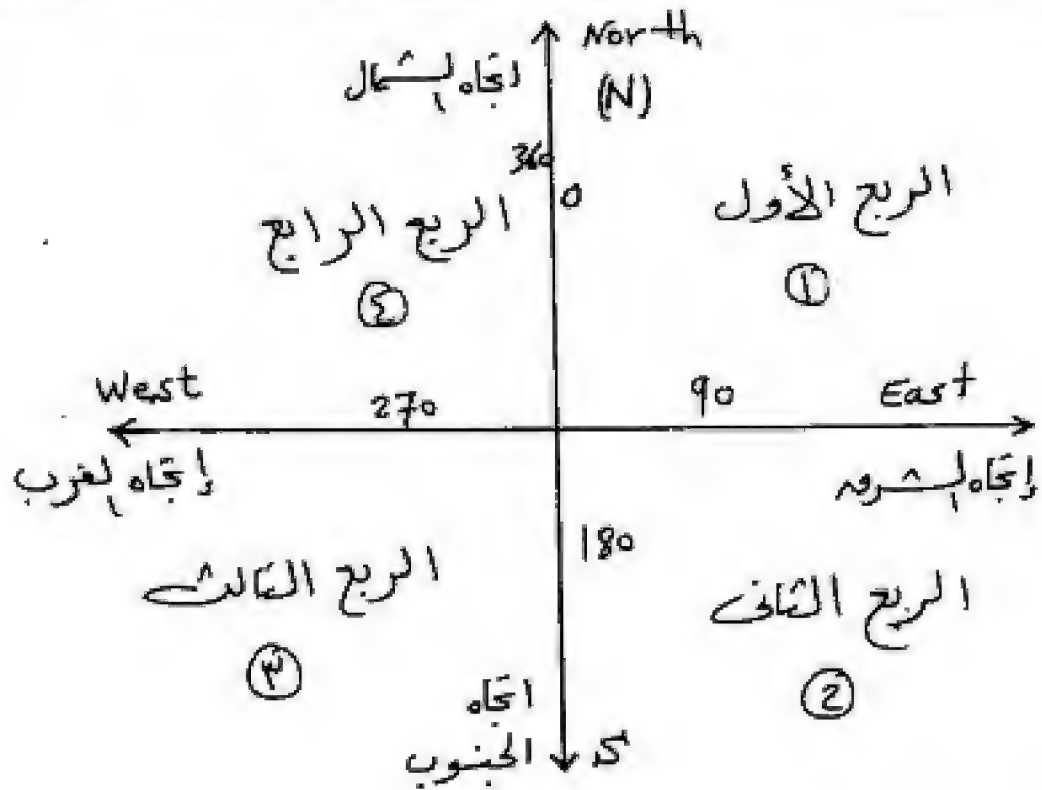 North
اتجاه الشمال
(N)
360
0
الربع الأول
①
الربع الرابع
④
West
270
90
East
إتجاه الغرب
إتجاه الشرق
180
الربع الثالث
③
الربع الثاني
②
اتجاه
الجنوب
S